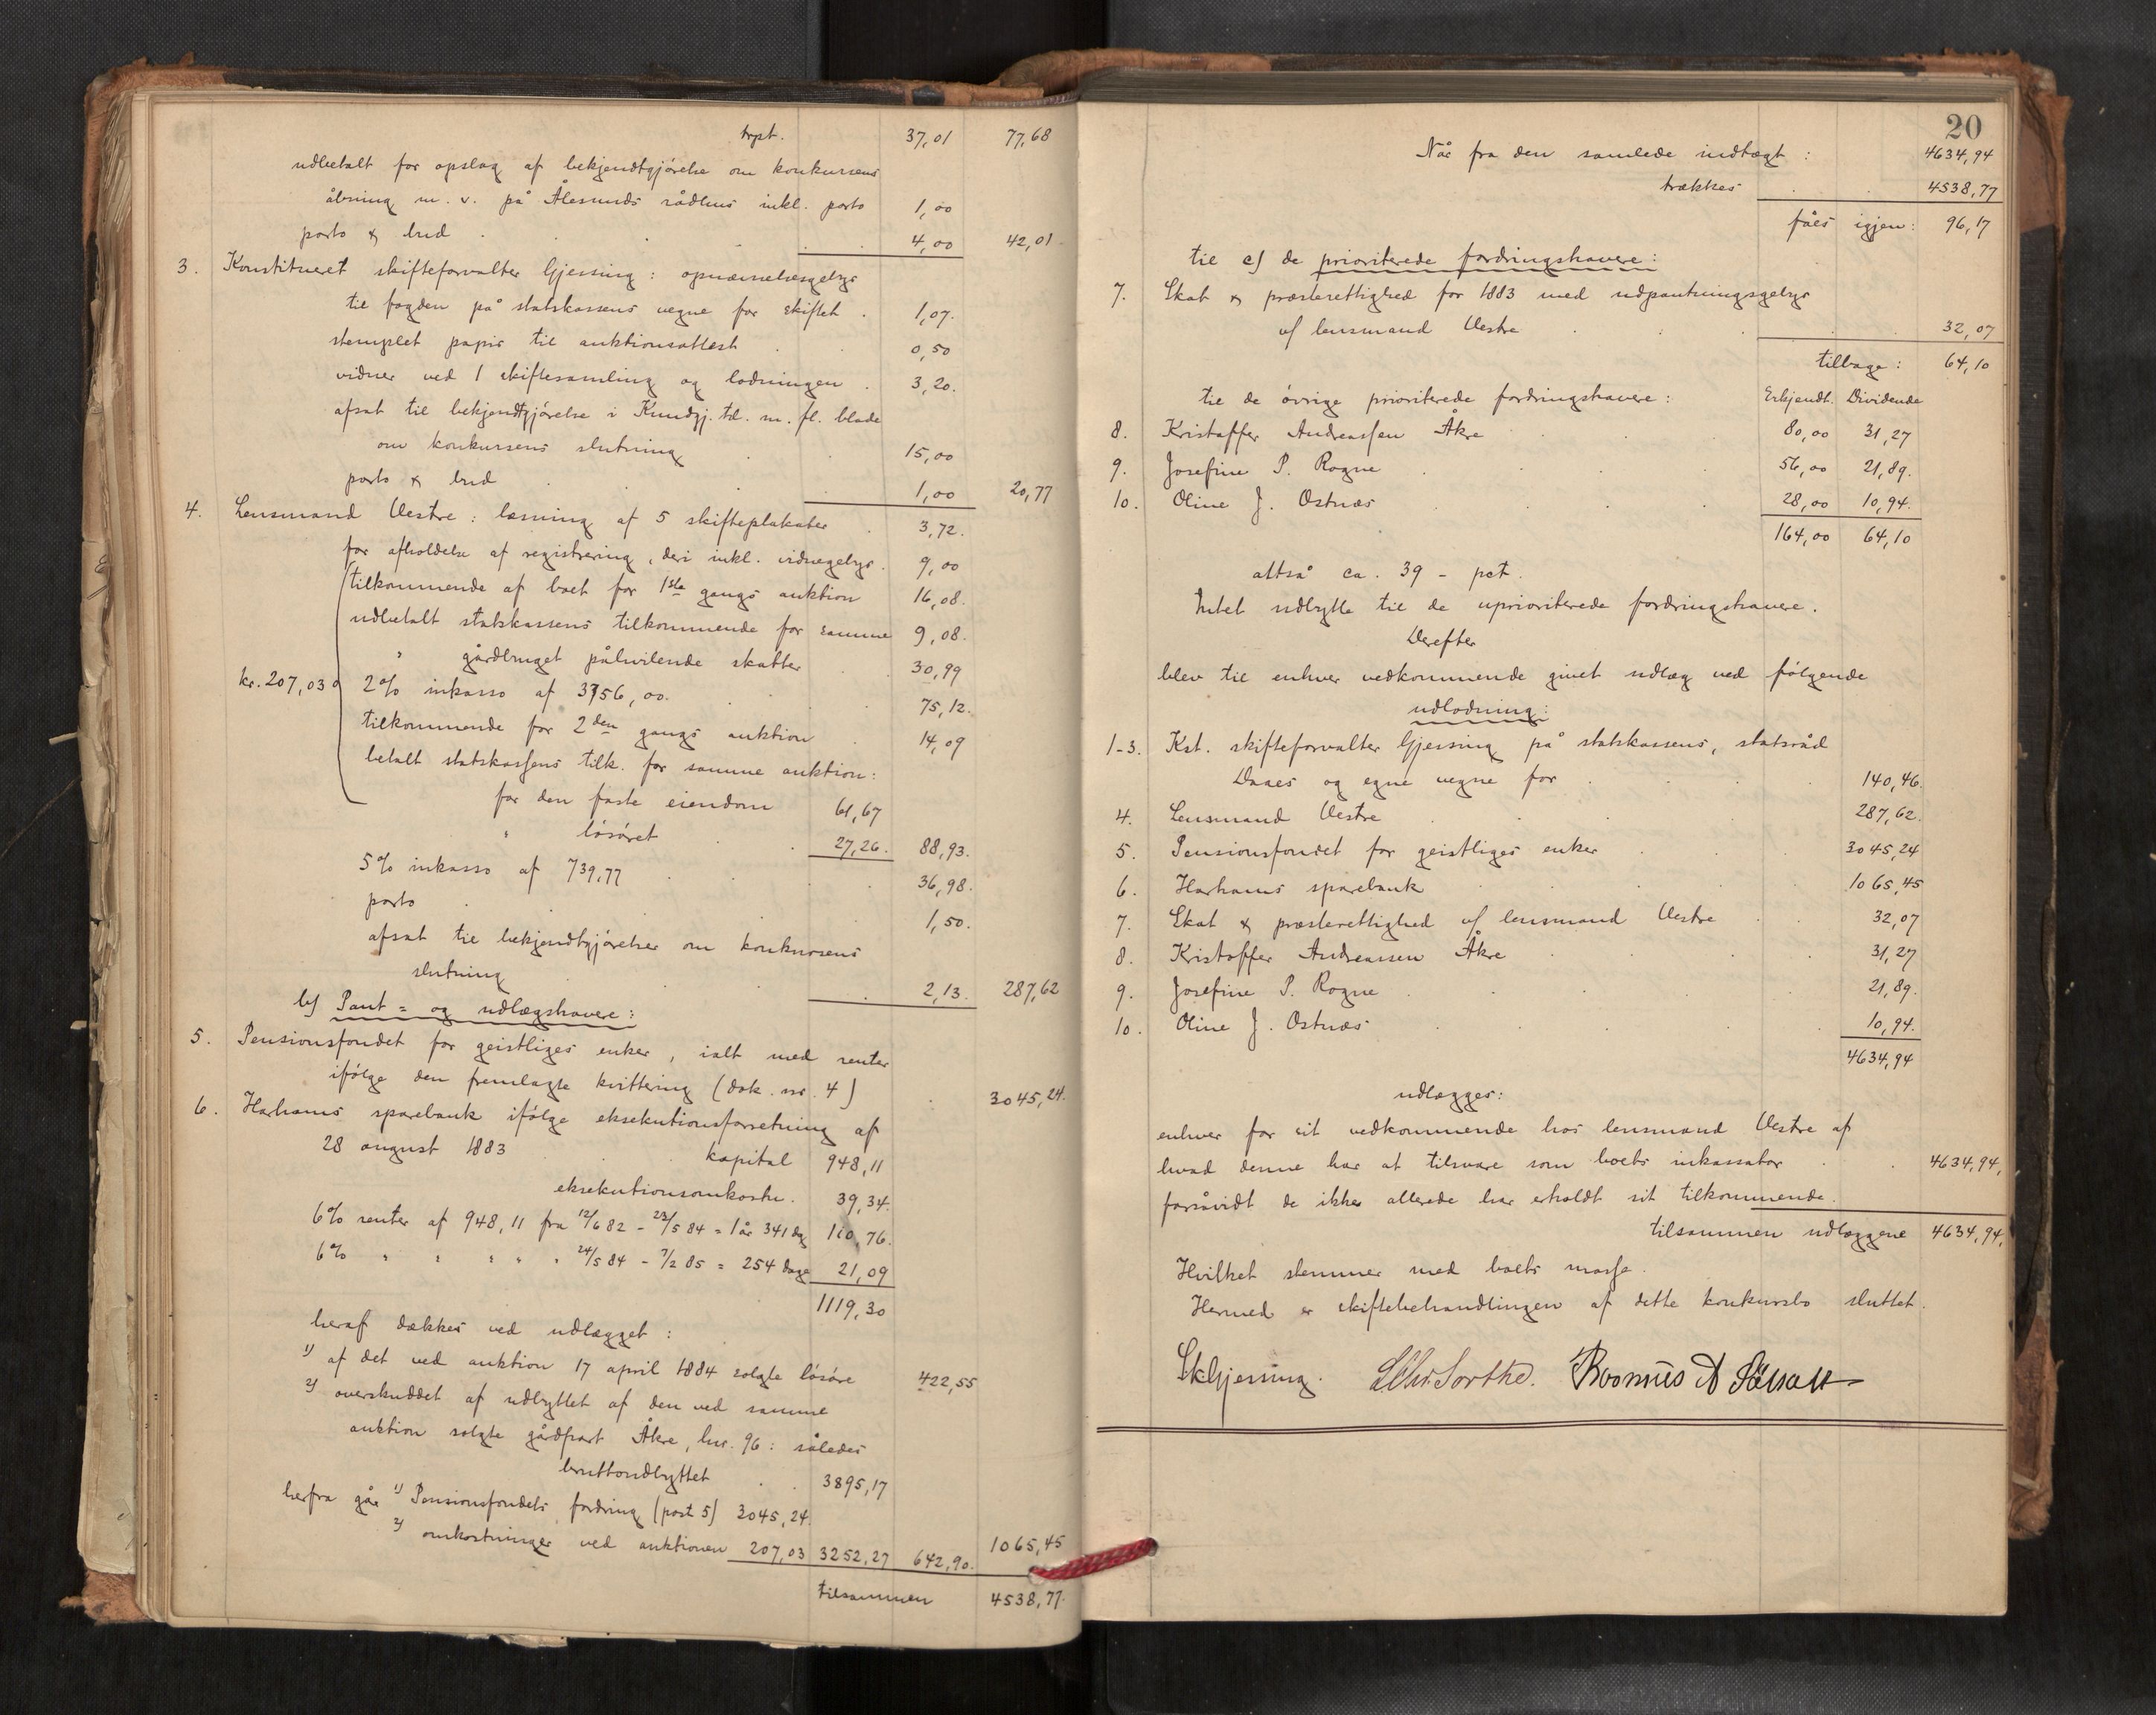 trpt. 37,01 77,68
udbetalt for opslag af bekjendtgjörelse om konkursens
åbning m. v. på Ålesunds rådhus inkl. porto 1,00
porto & bud 4,00 42,01
3. Konstitueret skifteforvalter Gjessing: opnævnelsesgebyr
til fogden på statskassens vegne for skiftet 1,07.
stemplet papir til auktionsattest 0,50
vidner ved 1 skiftesamling og lodningen 3,20.
afsat til bekjendtgjörelse i Kundgj. td. m. fl. blade
om konkursens slutning 15,00
porto & bud 1,00 20,77
4. Lensmand Vestre: læsning af 5 skifteplakater 3,72.
for afholdelse af registrering, deri inkl. vidnegebyr. 9,00
tilkommende af boet for 1ste gangs auktion 16,08.
udbetalt statskassens tilkommende for samme 9,08.
" gårdbruget påhvilende skatter 30,99
kr. 207,03 2% inkasso af 3756,00. 75,12.
tilkommende for 2den gangs auktion 14,09
betalt statskassens tilk. for samme auktion:
for den faste eiendom 61,67
" lösöret 27,26. 88,93.
5% inkasso af 739,77 36,98.
porto 1,50.
afsat til bekjendtgjörelser om konkursens
slutning 2,13. 287,62
b) Pant= og udlægshavere:
5. Pensionsfondet for geistliges enker, ialt med renter
ifölge den fremlagte kvittering (dok. nr. 4) 3045,24.
6. Harhams sparebank ifölge eksekutionsforretning af
28 august 1883 kapital 948,11
eksekutionsomkostn. 39,34.
6% renter af 948,11 fra 12/6 82 - 23/5 84 = 1 år 341 dg 110,76.
6% " " " " " 24/5 84 - 7/2 85 = 254 dage 21,09
1119,30
heraf dækkes ved udlægget:
1) af det ved auktion 17 april 1884 solgte lösöre 422,55
2) overskuddet af udbyttet af den ved samme
auktion solgte gårdpart Åkre, lnr. 96: således
bruttoudbyttet 3895,17
herfra går 1) Pensionsfondets fordring (post 5) 3045,24.
2) omkostninger ved auktionen 207,03 3252,27 642,90. 1065,45
tilsammen 4538,77.
20
Når fra den samlede indtægt: 4634,94
trækkes 4538,77
fåes igjen: 96,17
til c) de prioriterede fordringshavere:
7. Skat & præsterettighed for 1883 med udpantningsgebyr
v/ lensmand Vestre 32,07
tilbage: 64,10
til de övrige prioriterede fordringshavere: Erkjendt. Dividende
8. Kristoffer Andreassen Åkre 80,00 31,27
9. Josefine P. Rogne 56,00 21,89.
10. Oline J. Ostnæs 28,00 10,94.
164,00 64,10
altså ca. 39 - pct.
Intet udbytte til de uprioriterede fordringshavere.
Derefter
blev til enhver vedkommende givet udlæg ved fölgende
udlodning:
1-3. Kst. skifteforvalter Gjessing på statskassens, statsråd
Daaes og egne vegne for 140,46.
4. Lensmand Vestre 287,62.
5. Pensionsfondet for geistliges enker 3045,24
6. Harhams sparebank 1065,45
7. Skat & præsterettighed v/ lensmand Vestre 32,07
8. Kristoffer Andreassen Åkre 31,27
9. Josefine P. Rogne 21,89.
10. Oline J. Ostnæs 10,94.
4634,94
udlægges:
enhver for sit vedkommende hos lensmand Vestre af
hvad denne har at tilsvare som boets inkassator 4634,94,
forsåvidt de ikke allerede har erholdt sit tilkommende.
tilsammen udlæggene 4634,94,
Hvilket stemmer med boets masse.
Hermed er skiftebehandlingen af dette konkursbo sluttet.
SkGjessing.